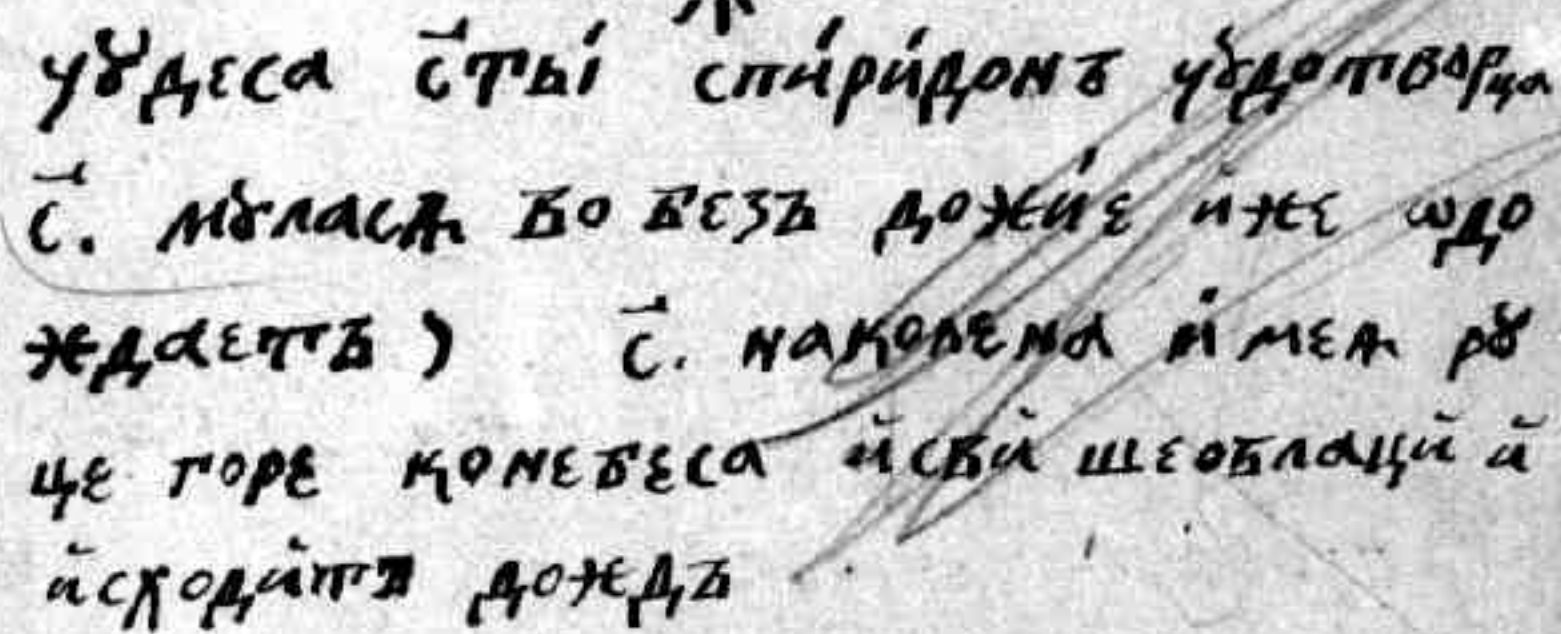 чꙋдеса с҃ты́і спи́ри́донъ чꙋдотворца
с҃. мꙋласѧ бо безъ дожи́е иже ѡдо
ждаетъ ) с҃. наколена и҆меѧ рꙋ
це горе конебеса и҆сби шеоблаци и҆
и҆сходитъ дождъ